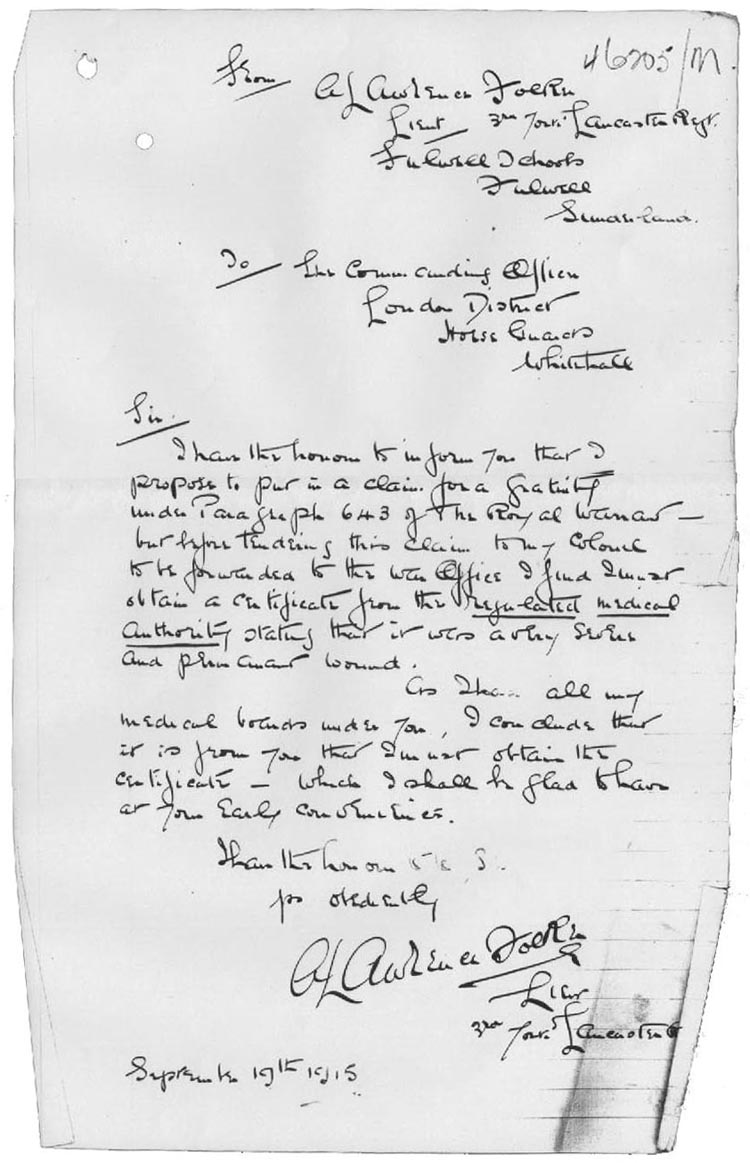 46205/M
From
A Lawrence Foster
Lieut 3rd Lancaster Regt.
Fulwell Schools
Fulwell
Sunderland.
To The Commanding Officer
London District
Horse Guards
Whitehall
Sir.
I have the honour to inform you that I
propose to put in a claim for a gratuity
under Paragraph 643 of The Royal Warrant —
but before tendering this claim to my Colonel
to be forwarded to the War Office I find I must
obtain a certificate from the regulated medical
Authority stating that it was a very severe
and permanent wound.
As I have all my
medical boards under you, I conclude that
it is from you that I must obtain the
certificate — which I shall be glad to have
at your early convenience.
I have the honour to be S.
yrs obediently
A Lawrence
Lieut
3rd Lancaster
September 19th 1915